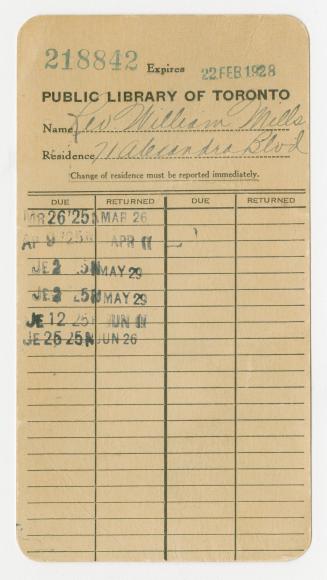 218842 Expires 22 FEB 1928
PUBLIC LIBRARY OF TORONTO
Name Rev William Mills
Residence 71 Alexandra Blvd
Change of residence must be reported immediately.
DUE RETURNED DUE RETURNED
MR 26 '25 MAR 26
AP 9 '25 APR
JE 2 25 MAY 29
JE 2 25 MAY 29
JE 12 25 JUN
JE 26 25 JUN 26